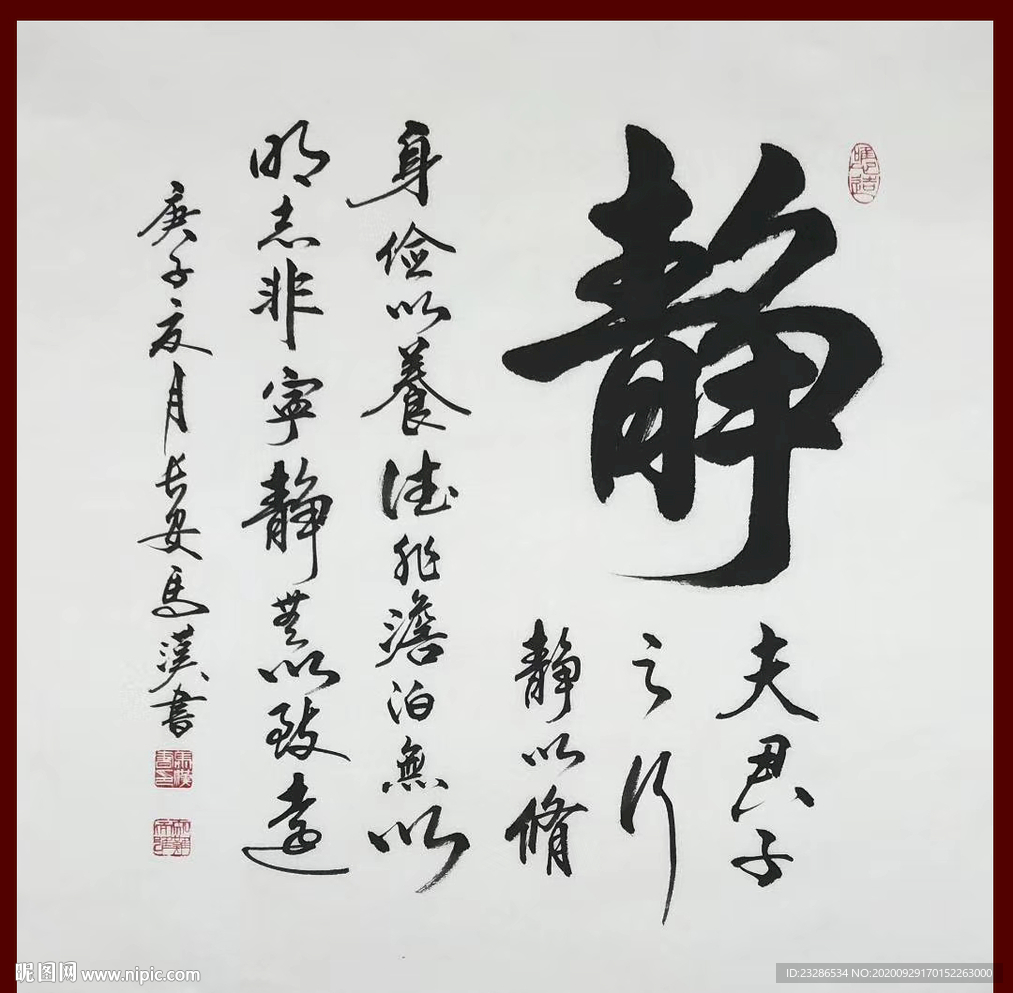 静
夫君子
之行
静以脩
身俭以養德非澹泊無以
明志非寧静無以致遠
庚子夏月长安馬漢書
昵图网 www.nipic.com
ID:23286534 NO:20200929170152263000